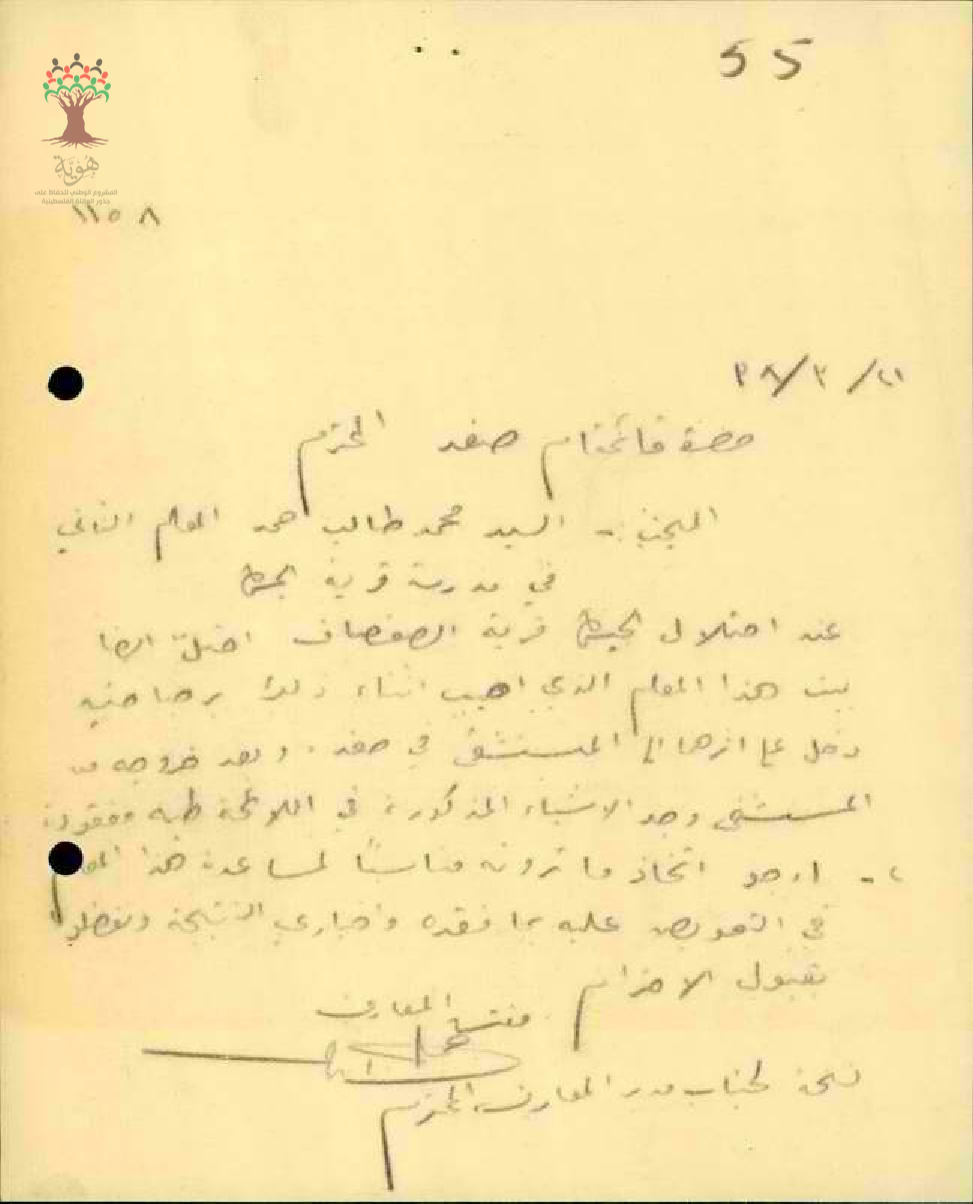 55
هُوِيَّة
المشروع الوطني للحفاظ على
جذور العائلة الفلسطينية
١١٥٨
٢١/٣/٣٨
حضرة قائمقام صفد المحترم
السيد محمد طالب احمد المعلم الثاني
في مدرسة قرية الجش
عند احتلال الجيش قرية الصفصاف احتل ايضا
بيت هذا المعلم الذي اصيب اثناء ذلك برصاصة
دخل على اثرها الى المستشفى في صفد. وبعد خروجه من
المستشفى وجد الاشياء المذكورة في اللائحة طيه مفقودة
٢- ارجو اتخاذ ما ترونه مناسبا لمساعدة هذا المعلم
في التعويض عليه بما فقده واخباري النتيجة وتفضلوا
بقبول الاحترام
مفتش المعارف
نسخة لجناب مدير المعارف المحترم